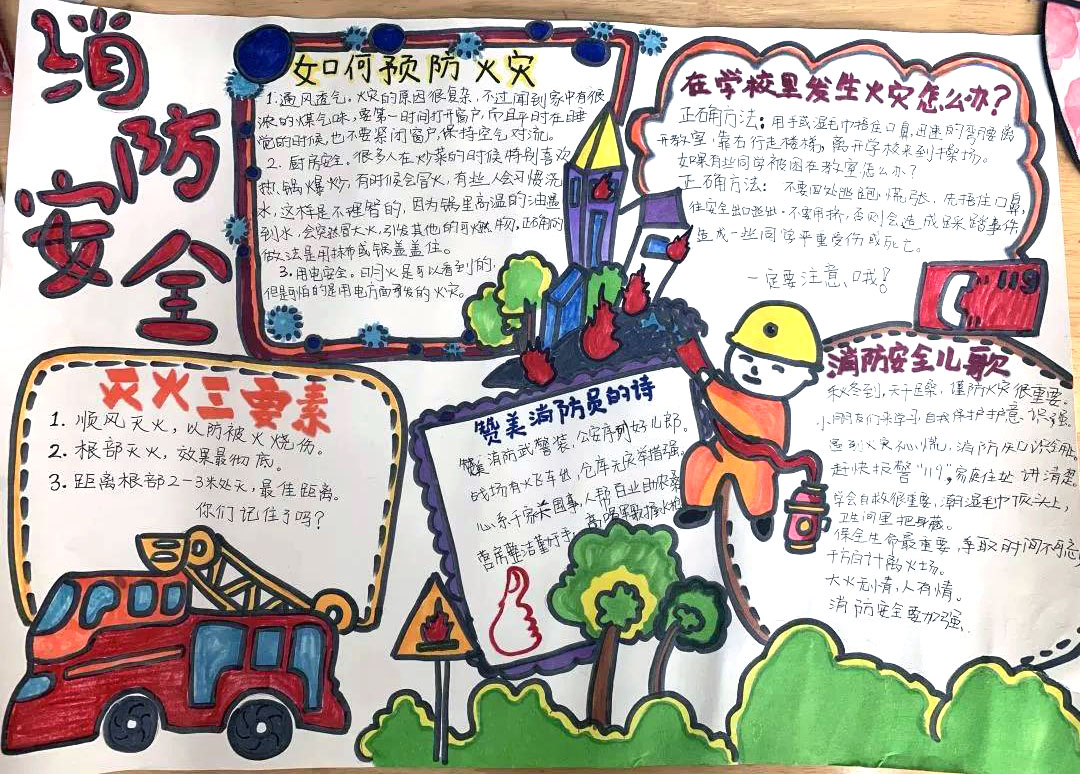 消防
安全
如何预防火灾
1.通风透气。火灾的原因很复杂,不过闻到家中有很
浓的煤气味,要第一时间打开窗户,而且平时在睡
觉的时候,也不要紧闭窗户,保持空气对流。
2.厨房安全。很多人在炒菜的时候特别喜欢
热锅爆炒,有时候会冒火,有些人会习惯浇
水,这样是不理智的,因为锅里高温的油遇
到水,会突然冒大火,引发其他的可燃物,正确的
做法是用抹布或锅盖盖住。
3.用电安全。明火是可以看到的,
但是可怕的是用电方面引发的火灾。
在学校里发生火灾怎么办?
正确方法:用手或湿毛巾捂住口鼻,迅速的弯腰离
开教室,靠右行走楼梯,离开学校来到操场。
如果有些同学被困在教室怎么办?
正确方法:不要四处逃跑,慌张,先捂住口鼻,
往安全出口逃出,不要拥挤,否则会造成踩踏事件
造成一些同学严重受伤或死亡。
一定要注意哦!
119
灭火三要素
1.顺风灭火,以防被火烧伤。
2.根部灭火,效果最彻底。
3.距离根部2-3米处灭,最佳距离。
你们记住了吗?
赞美消防员的诗
消防武警装,公安序列好儿郎。
战场有火飞车出,仓库无灾举措强。
心系千家关国事,人帮百业助农桑
消防安全儿歌
秋冬到,天干燥,谨防火灾很重要。
小朋友们来学习,自我保护意识强。
遇到火灾不慌,消防
赶快报警“119”,家庭住址讲清楚。
学会自救很重要,潮湿毛巾顶头上,
卫生间里把身藏。
保全生命最重要,争取时间不
千方百计离火场。
大火无情,人有情。
消防安全要加强。